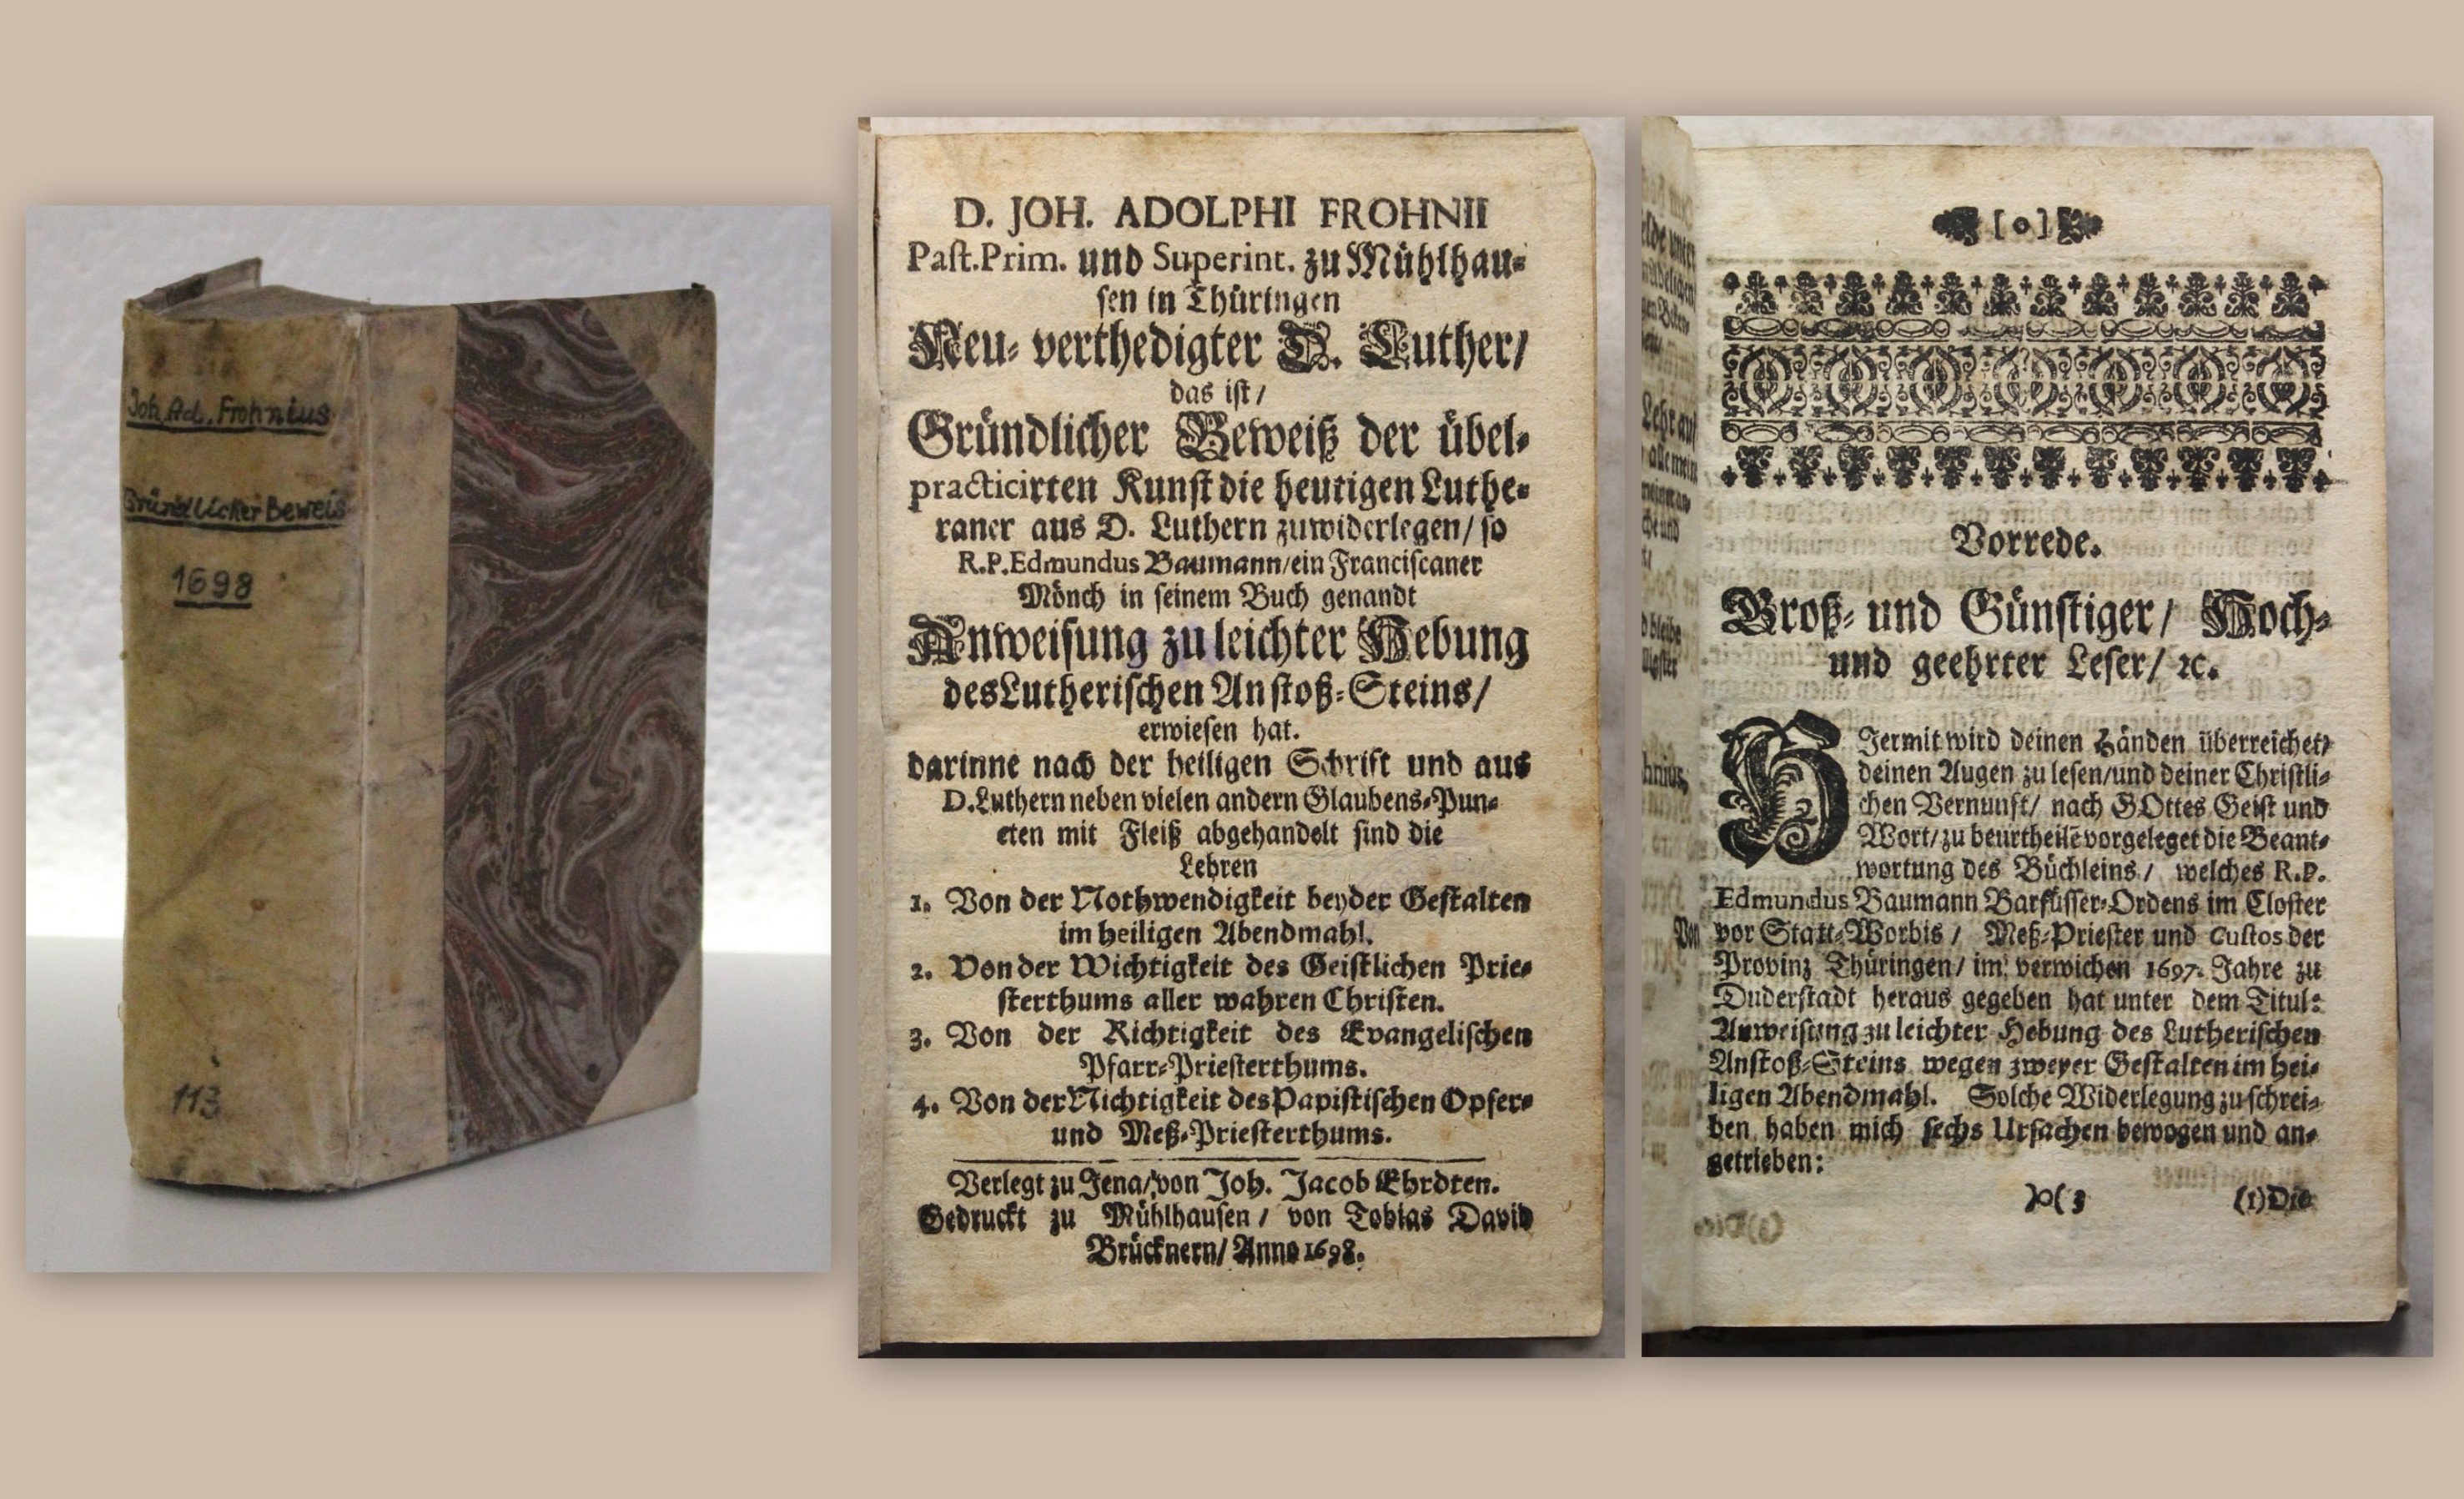 Joh. Ad. Frohnius
Gründlicher Beweis
1698
113
D. JOH. ADOLPHI FROHNII
Paſt. Prim. und Superint. zu Mühlhau-
ſen in Thüringen
Neu-verthedigter D. Luther/
das iſt/
Gründlicher Beweiß der übel-
practicirten Kunſt die heutigen Luthe-
raner aus D. Luthern zuwiderlegen/ ſo
R.P. Edmundus Baumann/ ein Franciſcaner
Mönch in ſeinem Buch genandt
Anweiſung zu leichter Hebung
des Lutheriſchen Anſtoß-Steins/
erwieſen hat.
darinne nach der heiligen Schrift und aus
D. Luthern neben vielen andern Glaubens-Pun-
cten mit Fleiß abgehandelt ſind die
Lehren
1. Von der Nothwendigkeit beyder Geſtalten
im heiligen Abendmahl.
2. Von der Wichtigkeit des Geiſtlichen Prie-
ſterthums aller wahren Chriſten.
3. Von der Richtigkeit des Evangeliſchen
Pfarr-Prieſterthums.
4. Von der Nichtigkeit des Papiſtiſchen Opfer-
und Meß-Prieſterthums.
Verlegt zu Jena/ von Joh. Jacob Ehrdten.
Gedruckt zu Mühlhauſen/ von Tobias David
Brücknern/ Anno 1698.
[o]
Vorrede.
Groß- und Günſtiger/ Hoch-
und geehrter Leſer/ ꝛc.
HJermit wird deinen Händen überreichet/
deinen Augen zu leſen/ und deiner Chriſtli-
chen Vernunft/ nach GOttes Geiſt und
Wort/ zu beurtheilē vorgeleget die Beant-
wortung des Büchleins/ welches R.P.
Edmundus Baumann Barfüſſer-Ordens im Cloſter
vor Statt-Worbis/ Meß-Prieſter und Cuſtos der
Provinz Thüringen/ im verwichen 1697. Jahre zu
Duderſtadt heraus gegeben hat unter dem Titul:
Anweiſung zu leichter Hebung des Lutheriſchen
Anſtoß-Steins wegen zweyer Geſtalten im hei-
ligen Abendmahl. Solche Widerlegung zu ſchrei-
ben haben mich ſechs Urſachen bewogen und an-
getrieben:
)o( 3 (1) Die